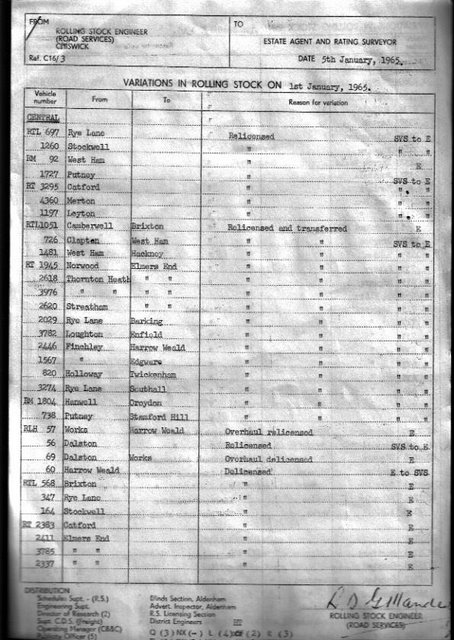 FROM
ROLLING STOCK ENGINEER
(ROAD SERVICES)
CHISWICK
Ref. C16/3
TO
ESTATE AGENT AND RATING SURVEYOR
DATE 5th January, 1965.
VARIATIONS IN ROLLING STOCK ON 1st January, 1965.
Vehicle number From To Reason for variation
CENTRAL
RTL 697 Rye Lane Relicensed SVS to E
1260 Stockwell " " "
RM 92 West Ham " E
1727 Putney " SVS to E
RT 3295 Catford " " "
4360 Merton " " "
1197 Leyton " " "
RTL1051 Camberwell Brixton Relicensed and transferred E
726 Clapton West Ham " " SVS to E
1481 West Ham Hackney " " " "
RT 1945 Norwood Elmers End " " " "
2618 Thornton Heath " " " " " "
3976 " " " " " " " "
2620 Streatham " " " " " "
2029 Rye Lane Barking " " " "
3782 Loughton Enfield " " " "
2446 Finchley Harrow Weald " " " "
1567 " Edgware " " " "
820 Holloway Twickenham " " " "
3274 Rye Lane Southall " " " "
RM 1804 Hanwell Croydon " " " "
738 Putney Stamford Hill " " " "
RLH 57 Works Harrow Weald Overhaul relicensed E
56 Dalston Relicensed SVS to E
69 Dalston Works Overhaul delicensed E
60 Harrow Weald Delicensed E to SVS
RTL 568 Brixton " E
347 Rye Lane " E
164 Stockwell " E
RT 2383 Catford " E
2411 Elmers End " E
3785 " " " E
2337 " " " E
DISTRIBUTION
Schedules Supt. - (R.S.)
Engineering Supt.
Director of Research (2)
Supt. C.D.S. (Freight)
Operating Manager (C&BC)
Officer (5)
Blinds Section, Aldenham
Advert. Inspector, Aldenham
R.S. Licensing Section
District Engineers
ROLLING STOCK ENGINEER
(ROAD SERVICES)